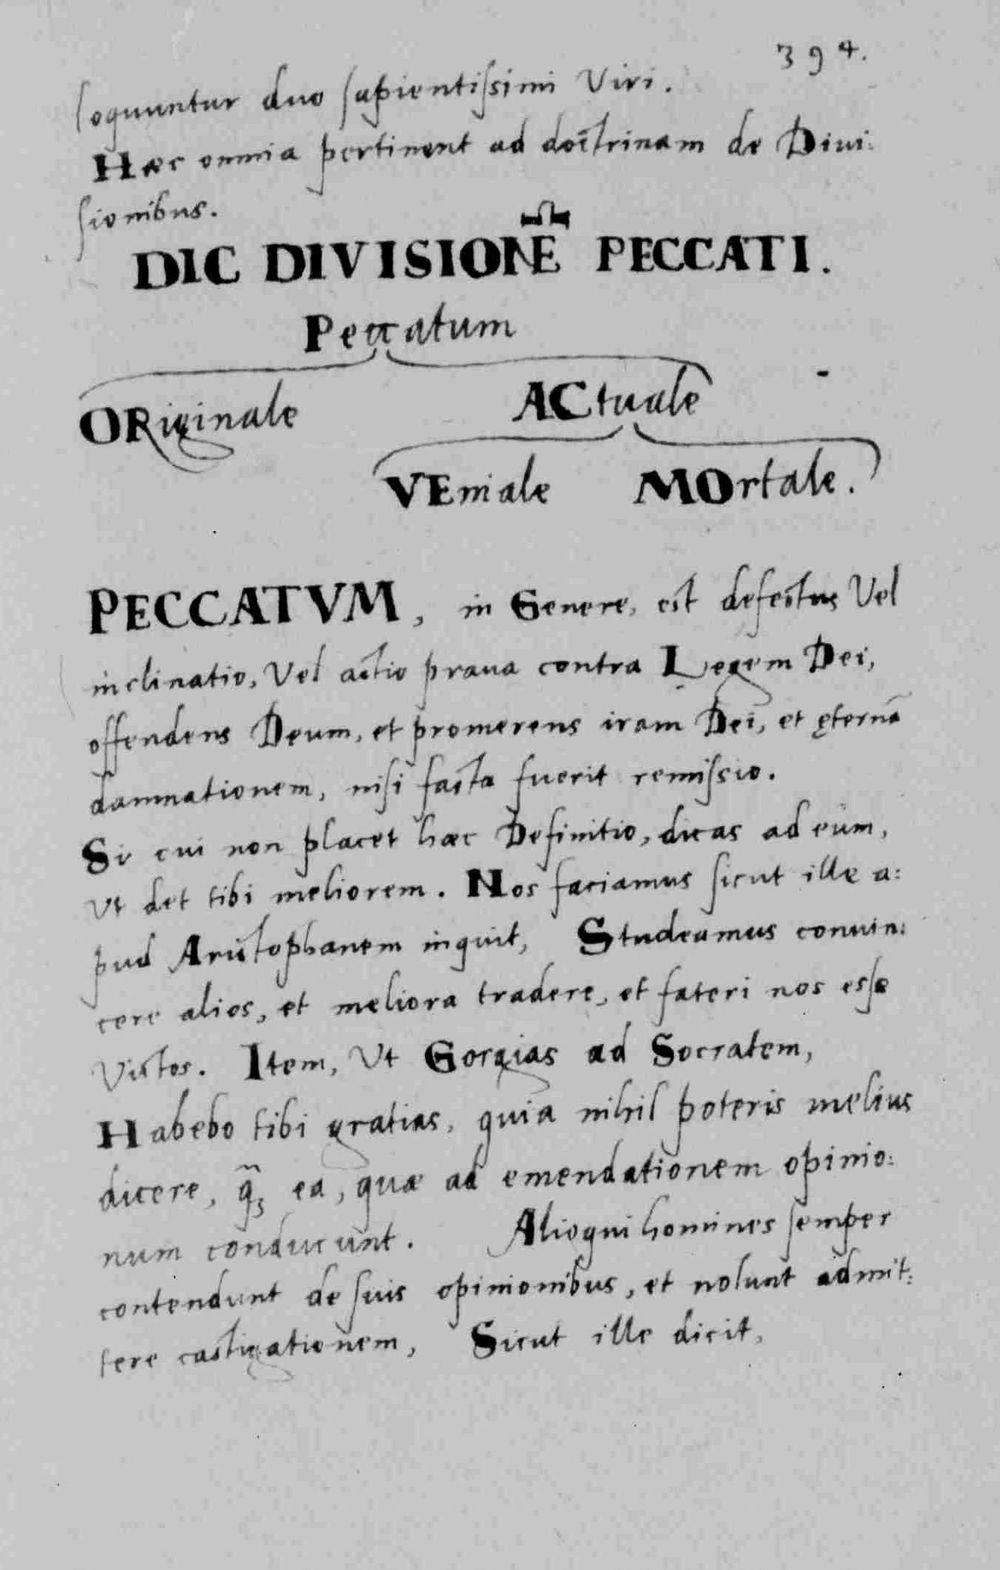 394.
loquuntur duo sapientissimi Viri.
Hæc omnia pertinent ad doctrinam de Diui:
sionibus.
DIC DIVISIONE PECCATI.
Peccatum
ORiginale ACtuale
VEniale MOrtale.
PECCATVM, in Genere, est defectus Vel
inclinatio, Vel actio praua contra Legem Dei,
offendens Deum, et promerens iram Dei, et ęternā
damnationem, nisi facta fuerit remissio.
Si cui non placet hæc Definitio, dicas ad eum,
Vt det tibi meliorem. Nos faciamus sicut ille a:
pud Aristophanem inquit, Studeamus conuin:
cere alios, et meliora tradere, et fateri nos esse
Victos. Item, Vt Gorgias ad Socratem,
Habebo tibi gratias, quia nihil poteris melius
dicere, q̃ꝫ ea, quæ ad emendationem opinio:
num conducunt. Alioqui homines semper
contendunt de suis opinionibus, et nolunt admit:
tere castigationem, Sicut ille dicit,